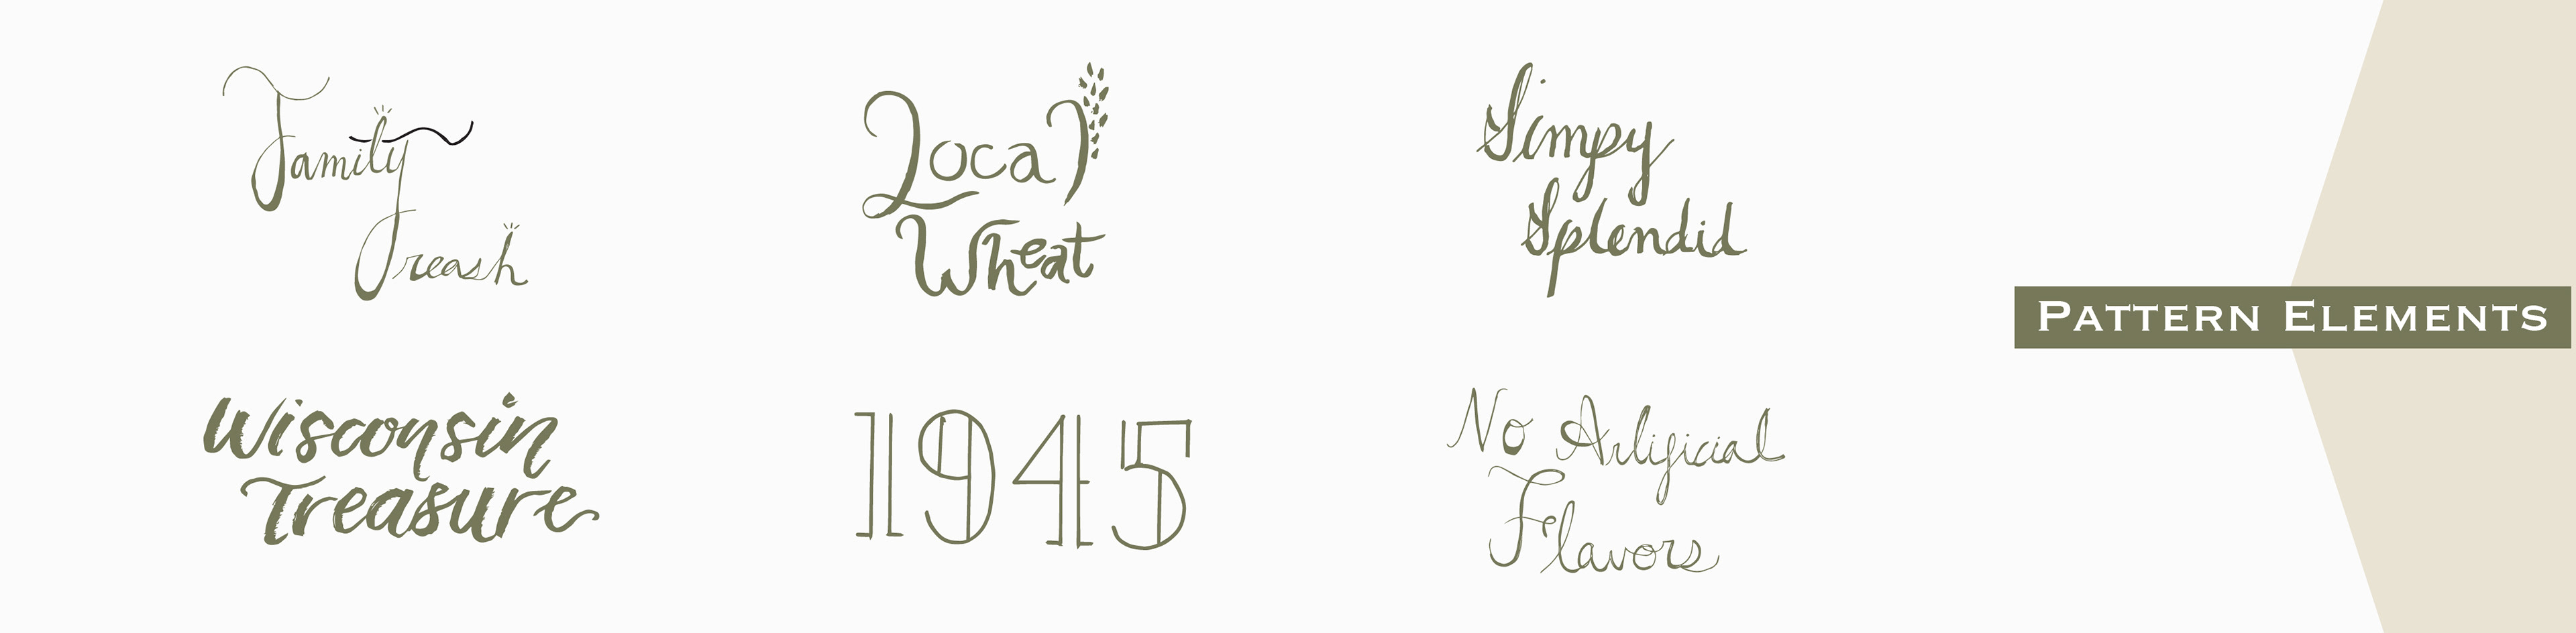 Family
Freash
Local
Wheat
Simpy
Splendid
Pattern Elements
Wisconsin
Treasure
1945
No Artificial
Flavors